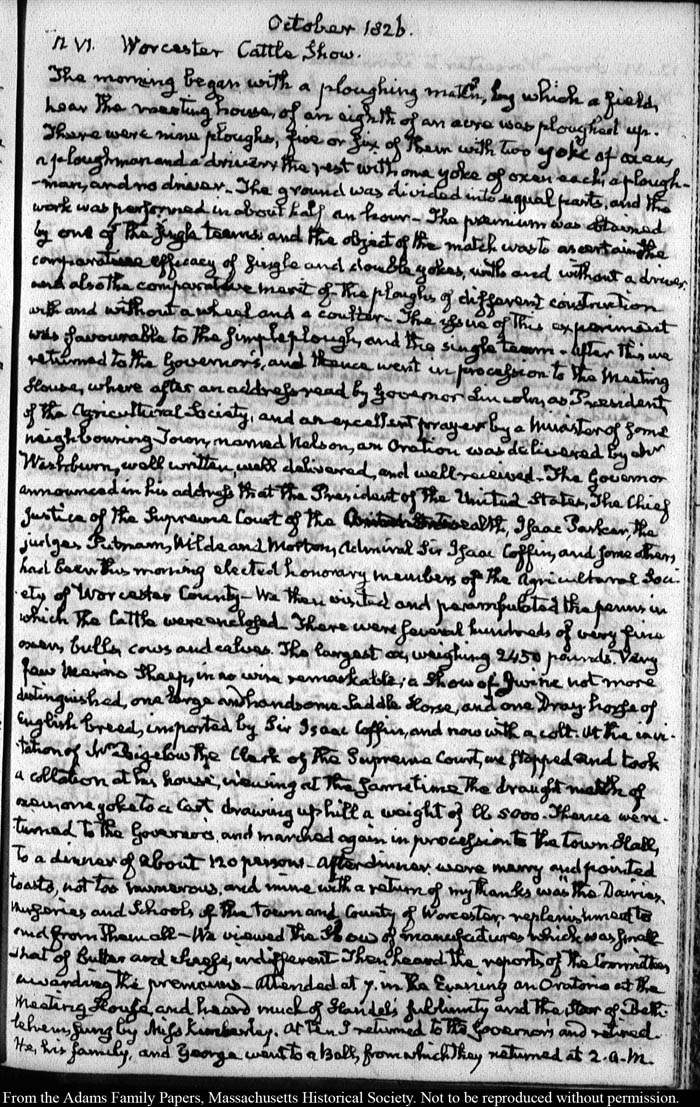 October 1826.
12. VI. Worcester Cattle Show.
The morning began with a ploughing match, by which a field,
near the meeting house, of an eighth of an acre was ploughed up.
There were nine ploughs, five or six of them with two yoke of oxen,
a ploughman and a driver, the rest with one yoke of oxen each, a plough-
-man, and no driver. The ground was divided into equal parts, and the
work was performed in about half an hour. The premium was obtained
by one of the single teams and the object of the match was to ascertain the
comparative efficacy of single and double yokes, with and without a driver
and also the comparative merit of the ploughs of different construction
with and without a wheel and a coulter. The issue of this experiment
was favourable to the simple plough, and the single team. After this we
returned to the Governor's, and thence went in procession to the Meeting
House, where after an address read by Governor Lincoln, as President,
of the Agricultural Society, and an excellent prayer by a Minister of some
neighbouring Town, named Nelson, an Oration was delivered by Mr
Washburn, well written, well delivered, and well received. The Governor
announced in his address that the President of the United States, The Chief
Justice of the Supreme Court of the Commonwealth, Isaac Parker, the
judges Putnam, Wilde and Morton, Admiral Sir Isaac Coffin, and some others
had been this morning elected honorary members of the Agricultural Soci-
ety of Worcester County. We then visited and perambulated the penns in
which the Cattle were enclosed. There were several hundreds of very fine
oxen, bulls, cows and calves. The largest ox, weighing 2450 pounds. Very
few Merino Sheep, in no wise remarkable; a Show of Swine not more
distinguished, one large and handsome Saddle Horse, and one Dray horse of
English breed, imported by Sir Isaac Coffin, and now with a colt. At the invi-
-tation of Mr Bigelow the Clerk of the Supreme Court, we stopped and took
a collation at his house, viewing at the same time the draught match of
oxen one yoke to a Cart drawing up hill a weight of lb 5000. Thence were-
turned to the Governor's and marched again in procession to the town Hall,
to a dinner of about 120 persons. After dinner were many and pointed
toasts, not too numerous, and mine with a return of my thanks was the Dairies,
Nurseries and Schools of the Town and County of Worcester, replenishment to
and from them all. We viewed the Show of manufactures which was small
that of Butter and cheese, indifferent. Then heard the reports of the Committees
awarding the premiums. Attended at 7. in the Evening an Oratorio at the
Meeting House, and heard much of Handel's sublimity and the Star of Beth-
lehem, sung by Miss Kimberley. At ten I returned to the Governor's and retired.
He, his family, and George went to a Ball, from which they returned at 2. A.M.
From the Adams Family Papers, Massachusetts Historical Society. Not to be reproduced without permission.